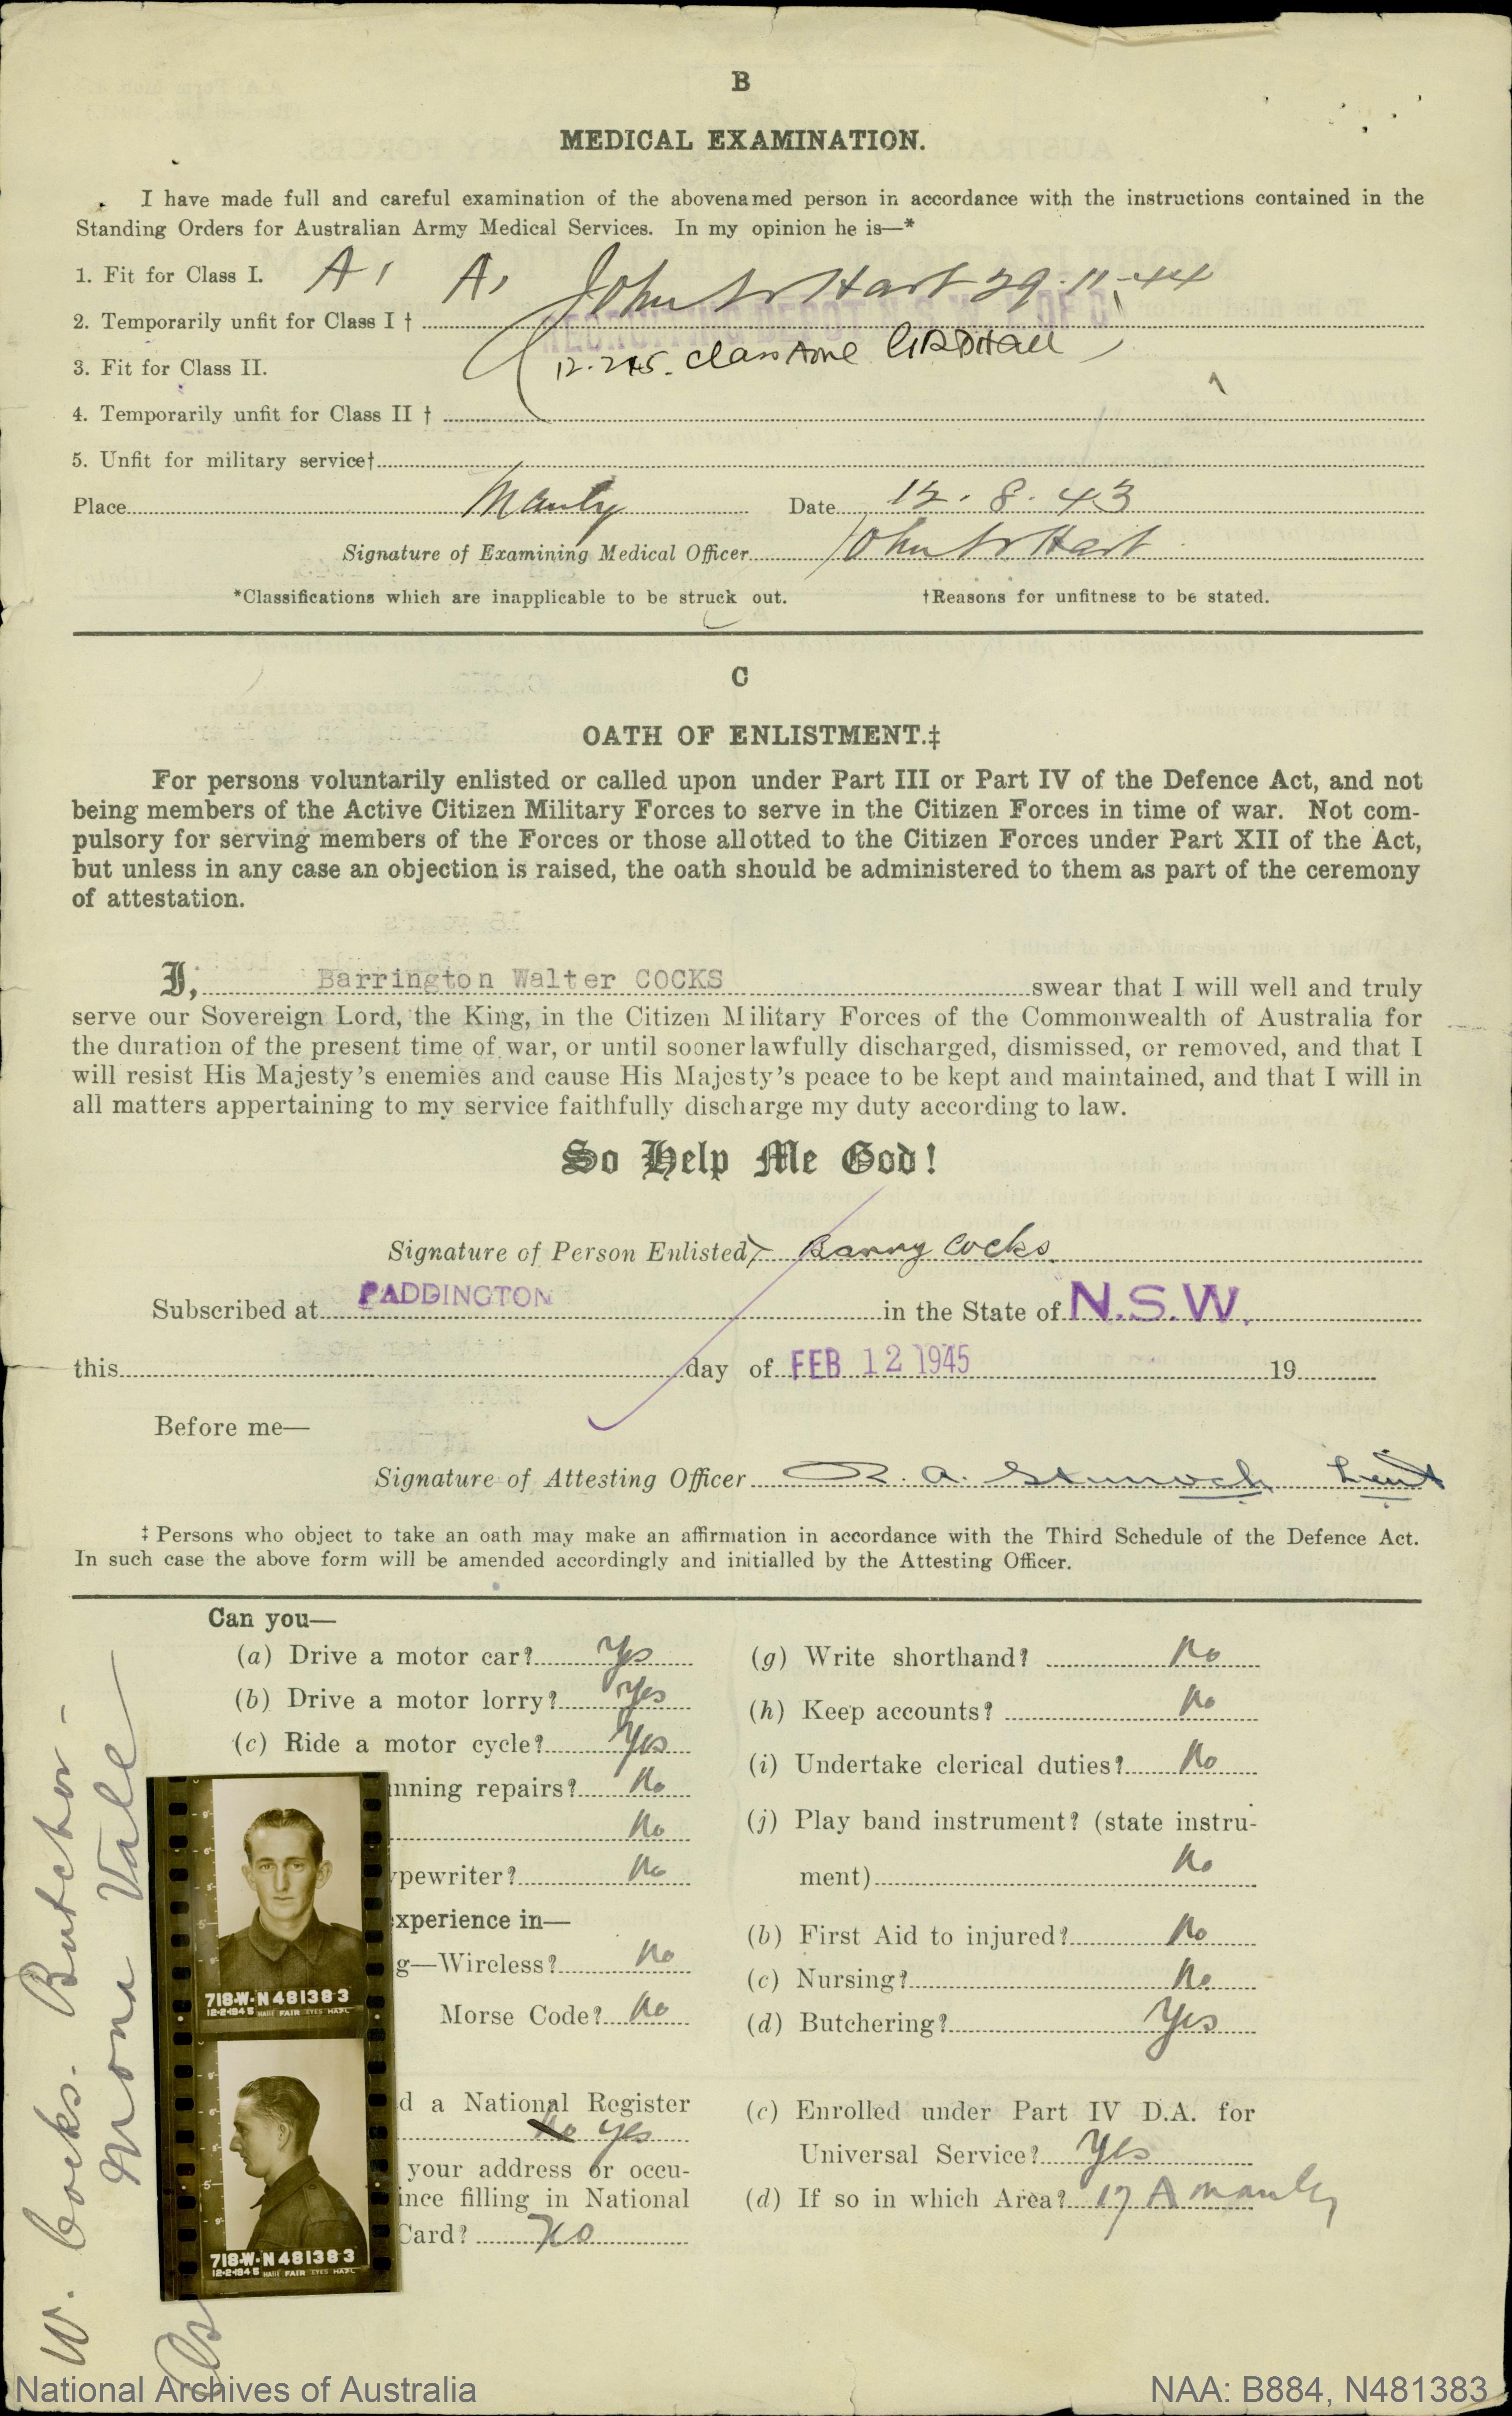 B
MEDICAL EXAMINATION.
I have made full and careful examination of the abovenamed person in accordance with the instructions contained in the
Standing Orders for Australian Army Medical Services. In my opinion he is—*
1. Fit for Class I. A1 A1 John W Hart 29.11.44
2. Temporarily unfit for Class I †
RECRUITING DEPOT N.S.W. L OF C
3. Fit for Class II. 12.2.45. Class AONE
4. Temporarily unfit for Class II †
5. Unfit for military service†
Place Manly Date 12.8.43
Signature of Examining Medical Officer John W Hart
*Classifications which are inapplicable to be struck out. †Reasons for unfitness to be stated.
C
OATH OF ENLISTMENT.‡
For persons voluntarily enlisted or called upon under Part III or Part IV of the Defence Act, and not
being members of the Active Citizen Military Forces to serve in the Citizen Forces in time of war. Not com-
pulsory for serving members of the Forces or those allotted to the Citizen Forces under Part XII of the Act,
but unless in any case an objection is raised, the oath should be administered to them as part of the ceremony
of attestation.
I, Barrington Walter COCKS swear that I will well and truly
serve our Sovereign Lord, the King, in the Citizen Military Forces of the Commonwealth of Australia for
the duration of the present time of war, or until sooner lawfully discharged, dismissed, or removed, and that I
will resist His Majesty's enemies and cause His Majesty's peace to be kept and maintained, and that I will in
all matters appertaining to my service faithfully discharge my duty according to law.
So Help Me God!
Signature of Person Enlisted Barry Cocks.
Subscribed at PADDINGTON in the State of N.S.W.
this day of FEB 12 1945 19
Before me—
Signature of Attesting Officer R. A. Lieut
‡ Persons who object to take an oath may make an affirmation in accordance with the Third Schedule of the Defence Act.
In such case the above form will be amended accordingly and initialled by the Attesting Officer.
Can you—
(a) Drive a motor car? Yes
(b) Drive a motor lorry? Yes
(c) Ride a motor cycle? Yes
nning repairs? No
No
ypewriter? No
experience in—
g—Wireless? No
Morse Code? No
d a National Register
No Yes
your address or occu-
ince filling in National
Card? No
(g) Write shorthand? No
(h) Keep accounts? No
(i) Undertake clerical duties? No
(j) Play band instrument? (state instru-
ment) No
(b) First Aid to injured? No
(c) Nursing? No
(d) Butchering? Yes
(c) Enrolled under Part IV D.A. for
Universal Service? Yes
(d) If so in which Area? 17 A Manly
W. Cocks. Butcher -
Mona Vale
718-W-N481383
12-2-1945 HAIR FAIR EYES HAZL
718-W-N481383
12-2-1945 HAIR FAIR EYES HAZL
National Archives of Australia
NAA: B884, N481383